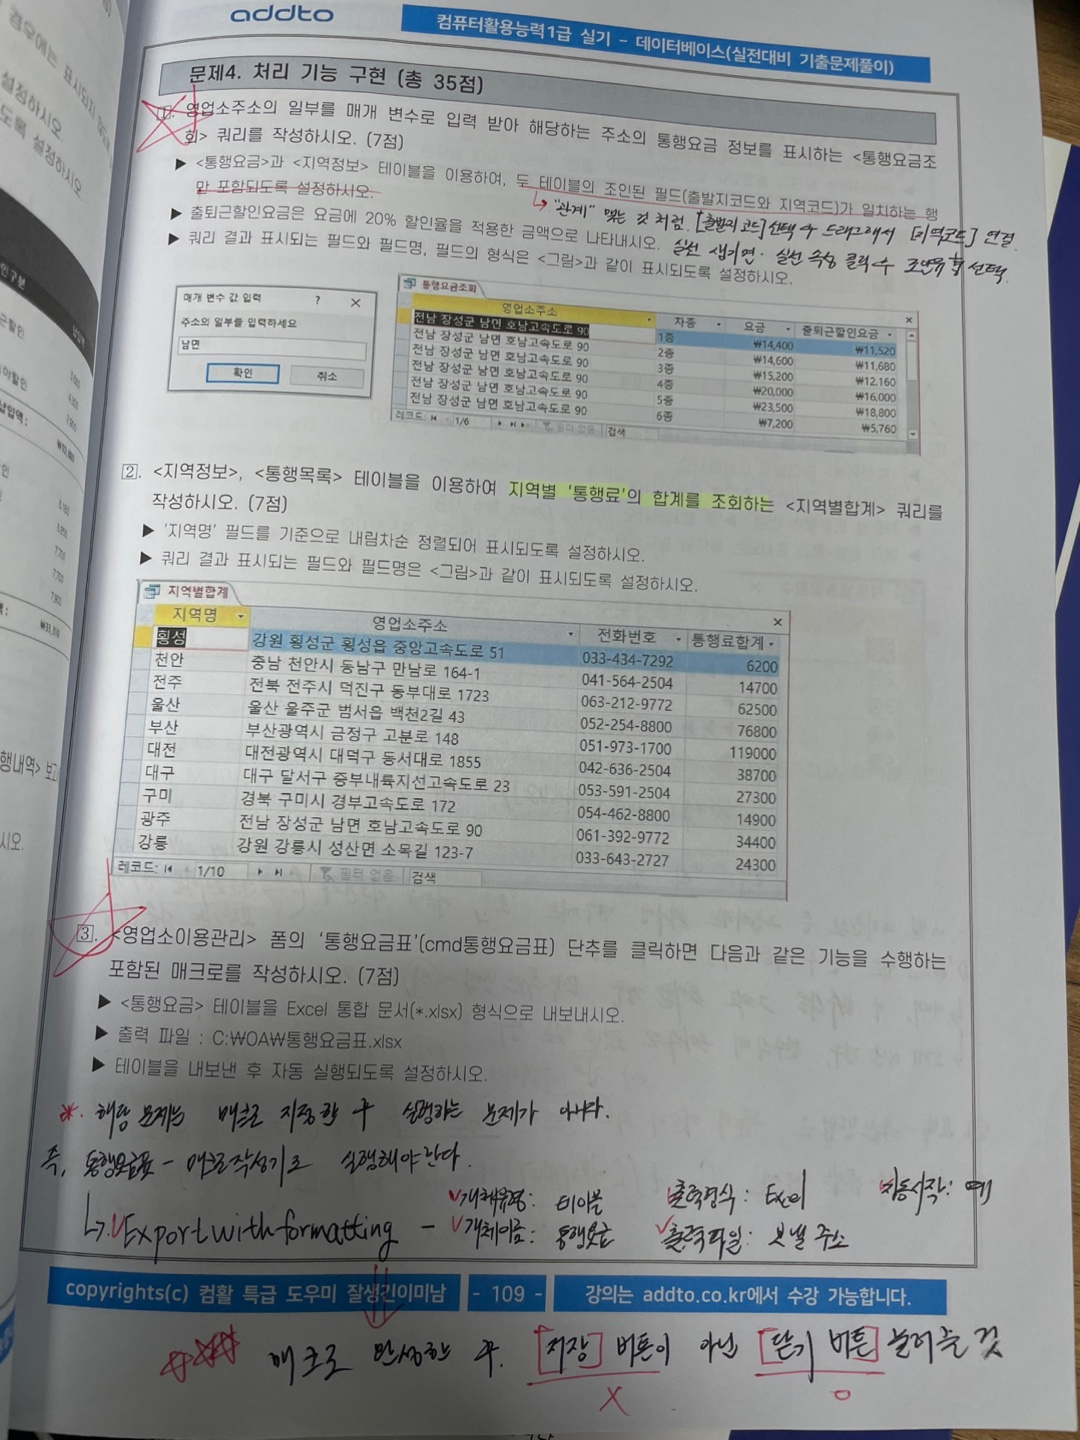 addto
컴퓨터활용능력1급 실기 - 데이터베이스(실전대비 기출문제풀이)
문제4. 처리 기능 구현 (총 35점)
1. 영업소주소의 일부를 매개 변수로 입력 받아 해당하는 주소의 통행요금 정보를 표시하는 <통행요금조
회> 쿼리를 작성하시오. (7점)
▶ <통행요금>과 <지역정보> 테이블을 이용하여, 두 테이블의 조인된 필드(출발지코드와 지역코드)가 일치하는 행
만 포함되도록 설정하시오.
↳ "관계" 맺는 것 처럼. [출발지코드] 선택 후 드래그해서 [지역코드] 연결.
▶ 출퇴근할인요금은 요금에 20% 할인율을 적용한 금액으로 나타내시오.
실선 생기면. 실선 속성 클릭 후 조인유형 선택.
▶ 쿼리 결과 표시되는 필드와 필드명, 필드의 형식은 <그림>과 같이 표시되도록 설정하시오.
매개 변수 값 입력 ? ×
주소의 일부를 입력하세요
남면
확인 취소
통행요금조회
영업소주소 차종 요금 출퇴근할인요금
전남 장성군 남면 호남고속도로 90 1종 ₩14,400 ₩11,520
전남 장성군 남면 호남고속도로 90 2종 ₩14,600 ₩11,680
전남 장성군 남면 호남고속도로 90 3종 ₩15,200 ₩12,160
전남 장성군 남면 호남고속도로 90 4종 ₩20,000 ₩16,000
전남 장성군 남면 호남고속도로 90 5종 ₩23,500 ₩18,800
전남 장성군 남면 호남고속도로 90 6종 ₩7,200 ₩5,760
레코드: 1/6 필터 없음 검색
2. <지역정보>, <통행목록> 테이블을 이용하여 지역별 '통행료'의 합계를 조회하는 <지역별합계> 쿼리를
작성하시오. (7점)
▶ '지역명' 필드를 기준으로 내림차순 정렬되어 표시되도록 설정하시오.
▶ 쿼리 결과 표시되는 필드와 필드명은 <그림>과 같이 표시되도록 설정하시오.
지역별합계
지역명 영업소주소 전화번호 통행료합계
횡성 강원 횡성군 횡성읍 중앙고속도로 51 033-434-7292 6200
천안 충남 천안시 동남구 만남로 164-1 041-564-2504 14700
전주 전북 전주시 덕진구 동부대로 1723 063-212-9772 62500
울산 울산 울주군 범서읍 백천2길 43 052-254-8800 76800
부산 부산광역시 금정구 고분로 148 051-973-1700 119000
대전 대전광역시 대덕구 동서대로 1855 042-636-2504 38700
대구 대구 달서구 중부내륙지선고속도로 23 053-591-2504 27300
구미 경북 구미시 경부고속도로 172 054-462-8800 14900
광주 전남 장성군 남면 호남고속도로 90 061-392-9772 34400
강릉 강원 강릉시 성산면 소목길 123-7 033-643-2727 24300
레코드: 1/10 필터 없음 검색
3. <영업소이용관리> 폼의 '통행요금표'(cmd통행요금표) 단추를 클릭하면 다음과 같은 기능을 수행하는
포함된 매크로를 작성하시오. (7점)
▶ <통행요금> 테이블을 Excel 통합 문서(*.xlsx) 형식으로 내보내시오.
▶ 출력 파일 : C:₩OA₩통행요금표.xlsx
▶ 테이블을 내보낸 후 자동 실행되도록 설정하시오.
*. 해당 문제는 매크로 지정한 후 실행하는 문제가 아니다.
즉, 통행요금표 - 매크로작성기로 실행해야 한다.
∨개체유형: 테이블 ∨출력형식: Excel ∨자동시작: 예
↳ ∨Exportwithformatting - ∨개체이름: 통행요금 ∨출력파일: 보낼 주소
copyrights(c) 컴활 특급 도우미 잘생긴이미남 - 109 - 강의는 addto.co.kr에서 수강 가능합니다.
매크로 완성한 후. [저장] 버튼이 아닌 [닫기 버튼] 눌러줄 것
X O